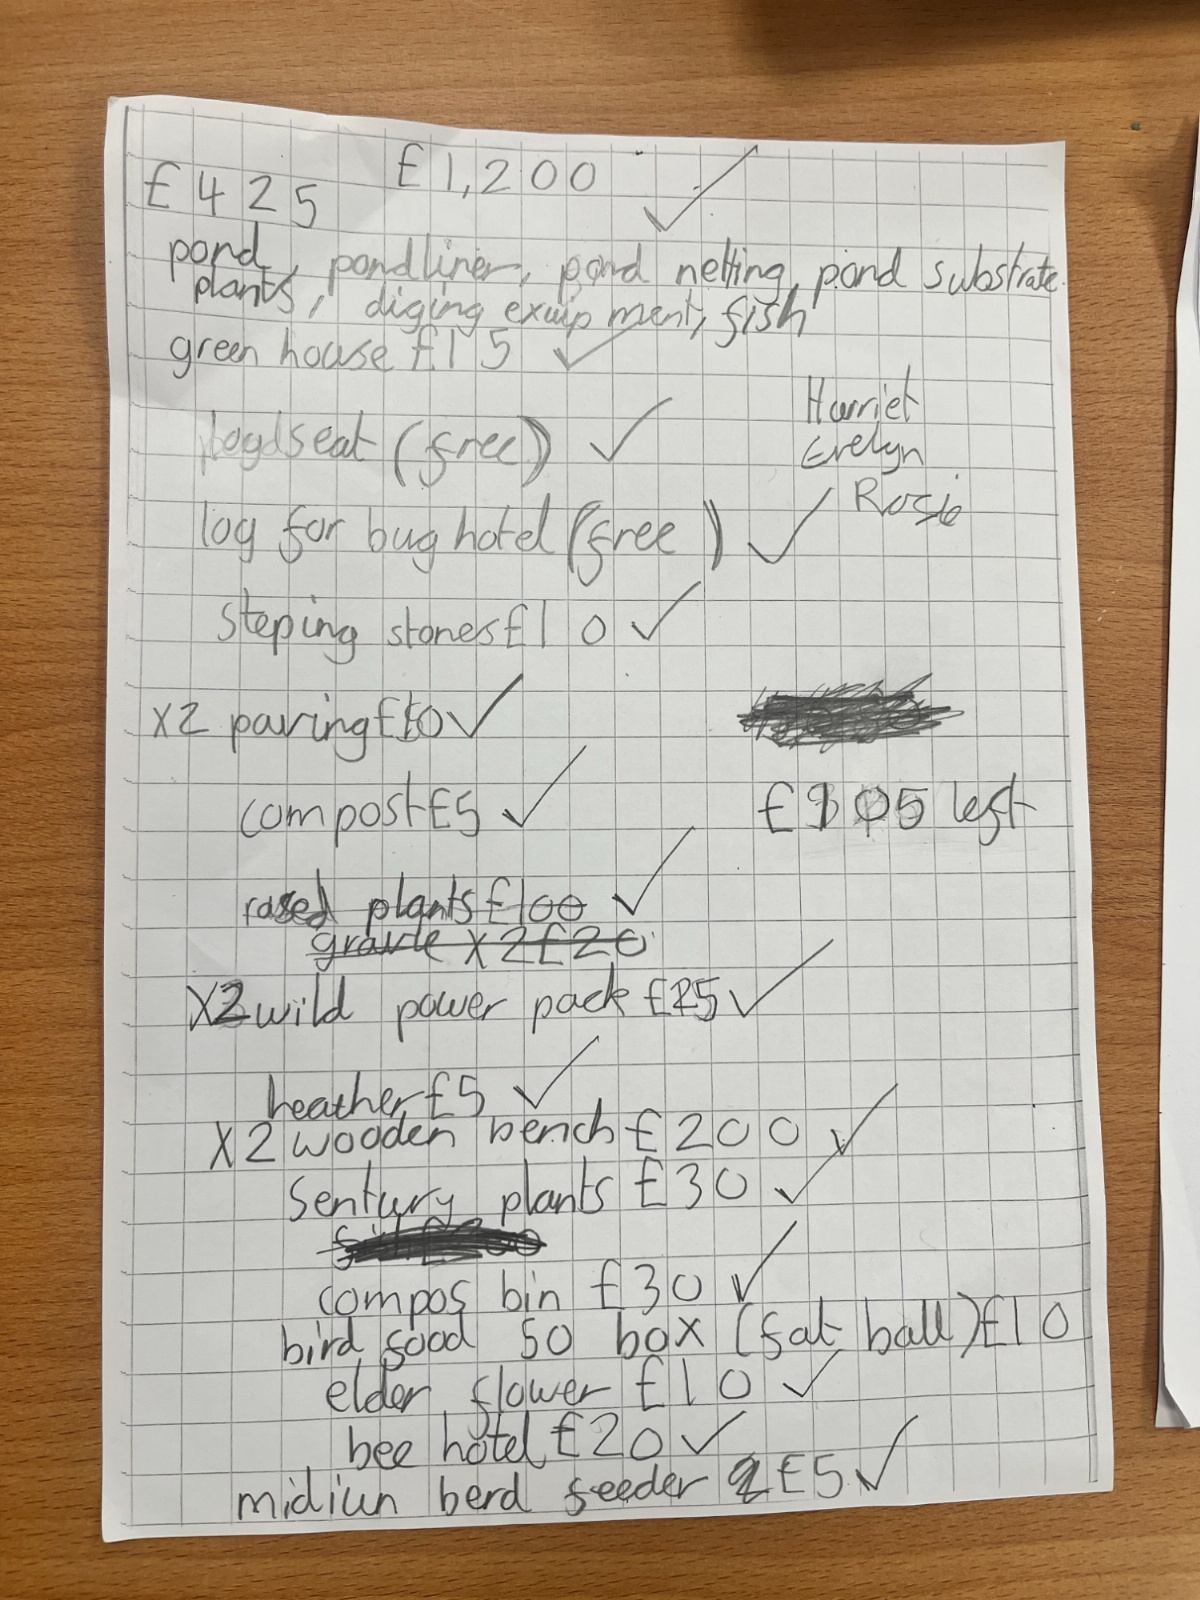 £1,200
£425
pond, pondliner, pond netting, pond substrate
plants, diging exuipment, fish
green house £15
Harriet
Evelyn
seat (free)
Rosie
log for bug hotel (free)
steping stones £10
X2 paving
compost £5
left
rased plants £100
gravle X2 £20
X2 wild power pack
heather £5
X2 wooden bench £200
Sentury plants £30
compos bin £30
bird food 50 box (fat ball) £10
elder flower £10
bee hotel £20
midiun berd feeder £5